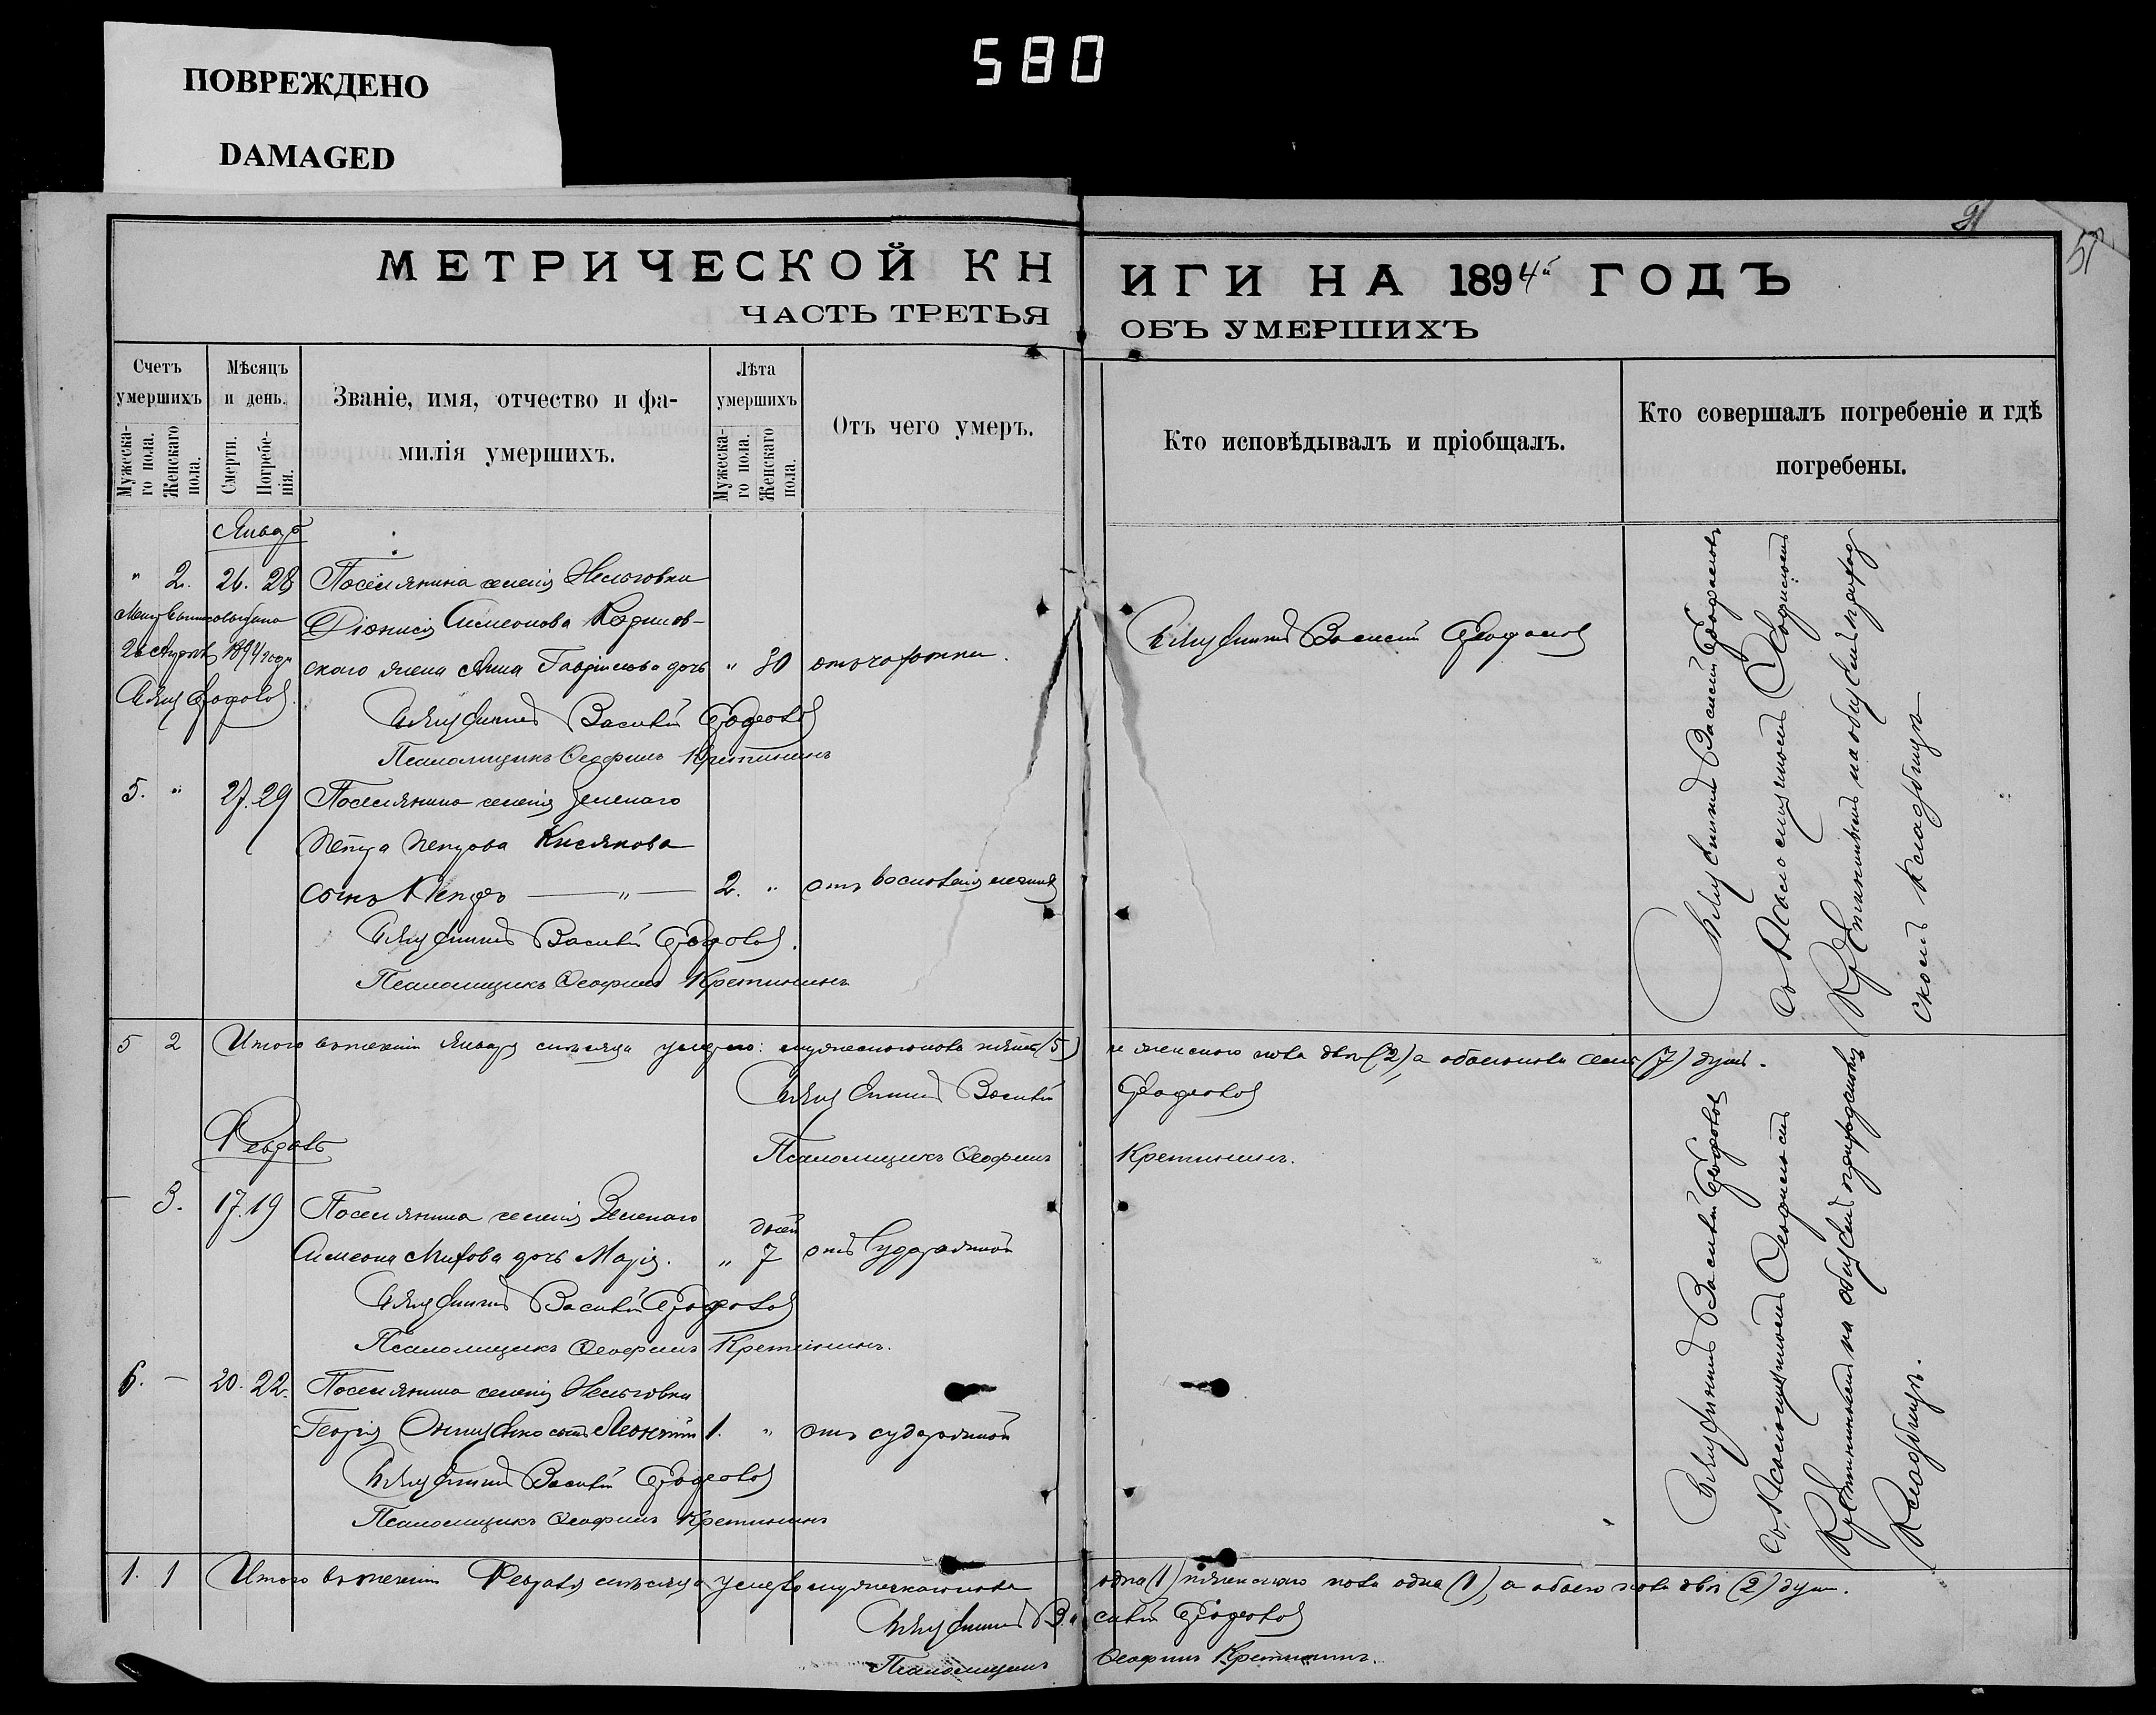 ПОВРЕЖДЕНО
DAMAGED
580
51
МЕТРИЧЕСКОЙ КНИГИ НА 1894й ГОДЪ
ЧАСТЬ ТРЕТЬЯ ОБЪ УМЕРШИХЪ
Счетъ умершихъ
Мужеска-го пола.
Женскаго пола.
Мѣсяцъ и день.
Смерти.
Погребе-нія.
Званіе, имя, отчество и фа-
милія умершихъ.
Лѣта умершихъ
Мужеска-го пола.
Женскаго пола.
Отъ чего умеръ.
Кто исповѣдывалъ и пріобщалъ.
Кто совершалъ погребеніе и гдѣ
погребены.
Январь
" 2. 26. 28 Поселянина селенія
Діонисія Симеонова
1894 года
ского жена Анна Гавріилова дочь " 30 отъ чахотки.
Священникъ Василій
Священникъ Василій
Псаломщикъ Ѳеофилъ Кретининъ
5. " 27. 29 Поселянина селенія Зеленаго
Петра Петрова Кислякова
сынъ Петръ — " — 2. " отъ воспаленія легкихъ
Священникъ Василій
Псаломщикъ Ѳеофилъ Кретининъ
Священникъ Василій
съ Псаломщикомъ Ѳеофиломъ
Кретининымъ на общемъ приход
скомъ кладбищѣ
5 2 Итого въ теченіи Января мѣсяца умерло: мужескаго пола пять (5) и женскаго пола двѣ (2), а обоего пола семь (7) душъ.
Священникъ Василій
Псаломщикъ Ѳеофилъ Кретининъ.
Февраль
— 3. 17. 19 Поселянина селенія Зеленаго
дней
Симеона дочь Марія. " 7 отъ судорожной
Священникъ Василій
Псаломщикъ Ѳеофилъ Кретининъ.
6. — 20. 22. Поселянина селенія
Георгія Онищенко сынъ 1. " отъ судорожной
Священникъ Василій
Псаломщикъ Ѳеофилъ Кретининъ
Священникъ Василій
съ Псаломщикомъ Ѳеофиломъ
Кретининымъ на общемъ приходскомъ
кладбищѣ.
1. 1 Итого въ теченіи Февраля мѣсяца умерло мужескаго пола одна (1) и женскаго пола одна (1), а обоего пола двѣ (2) души.
Священникъ Василій
Псаломщикъ Ѳеофилъ Кретининъ.